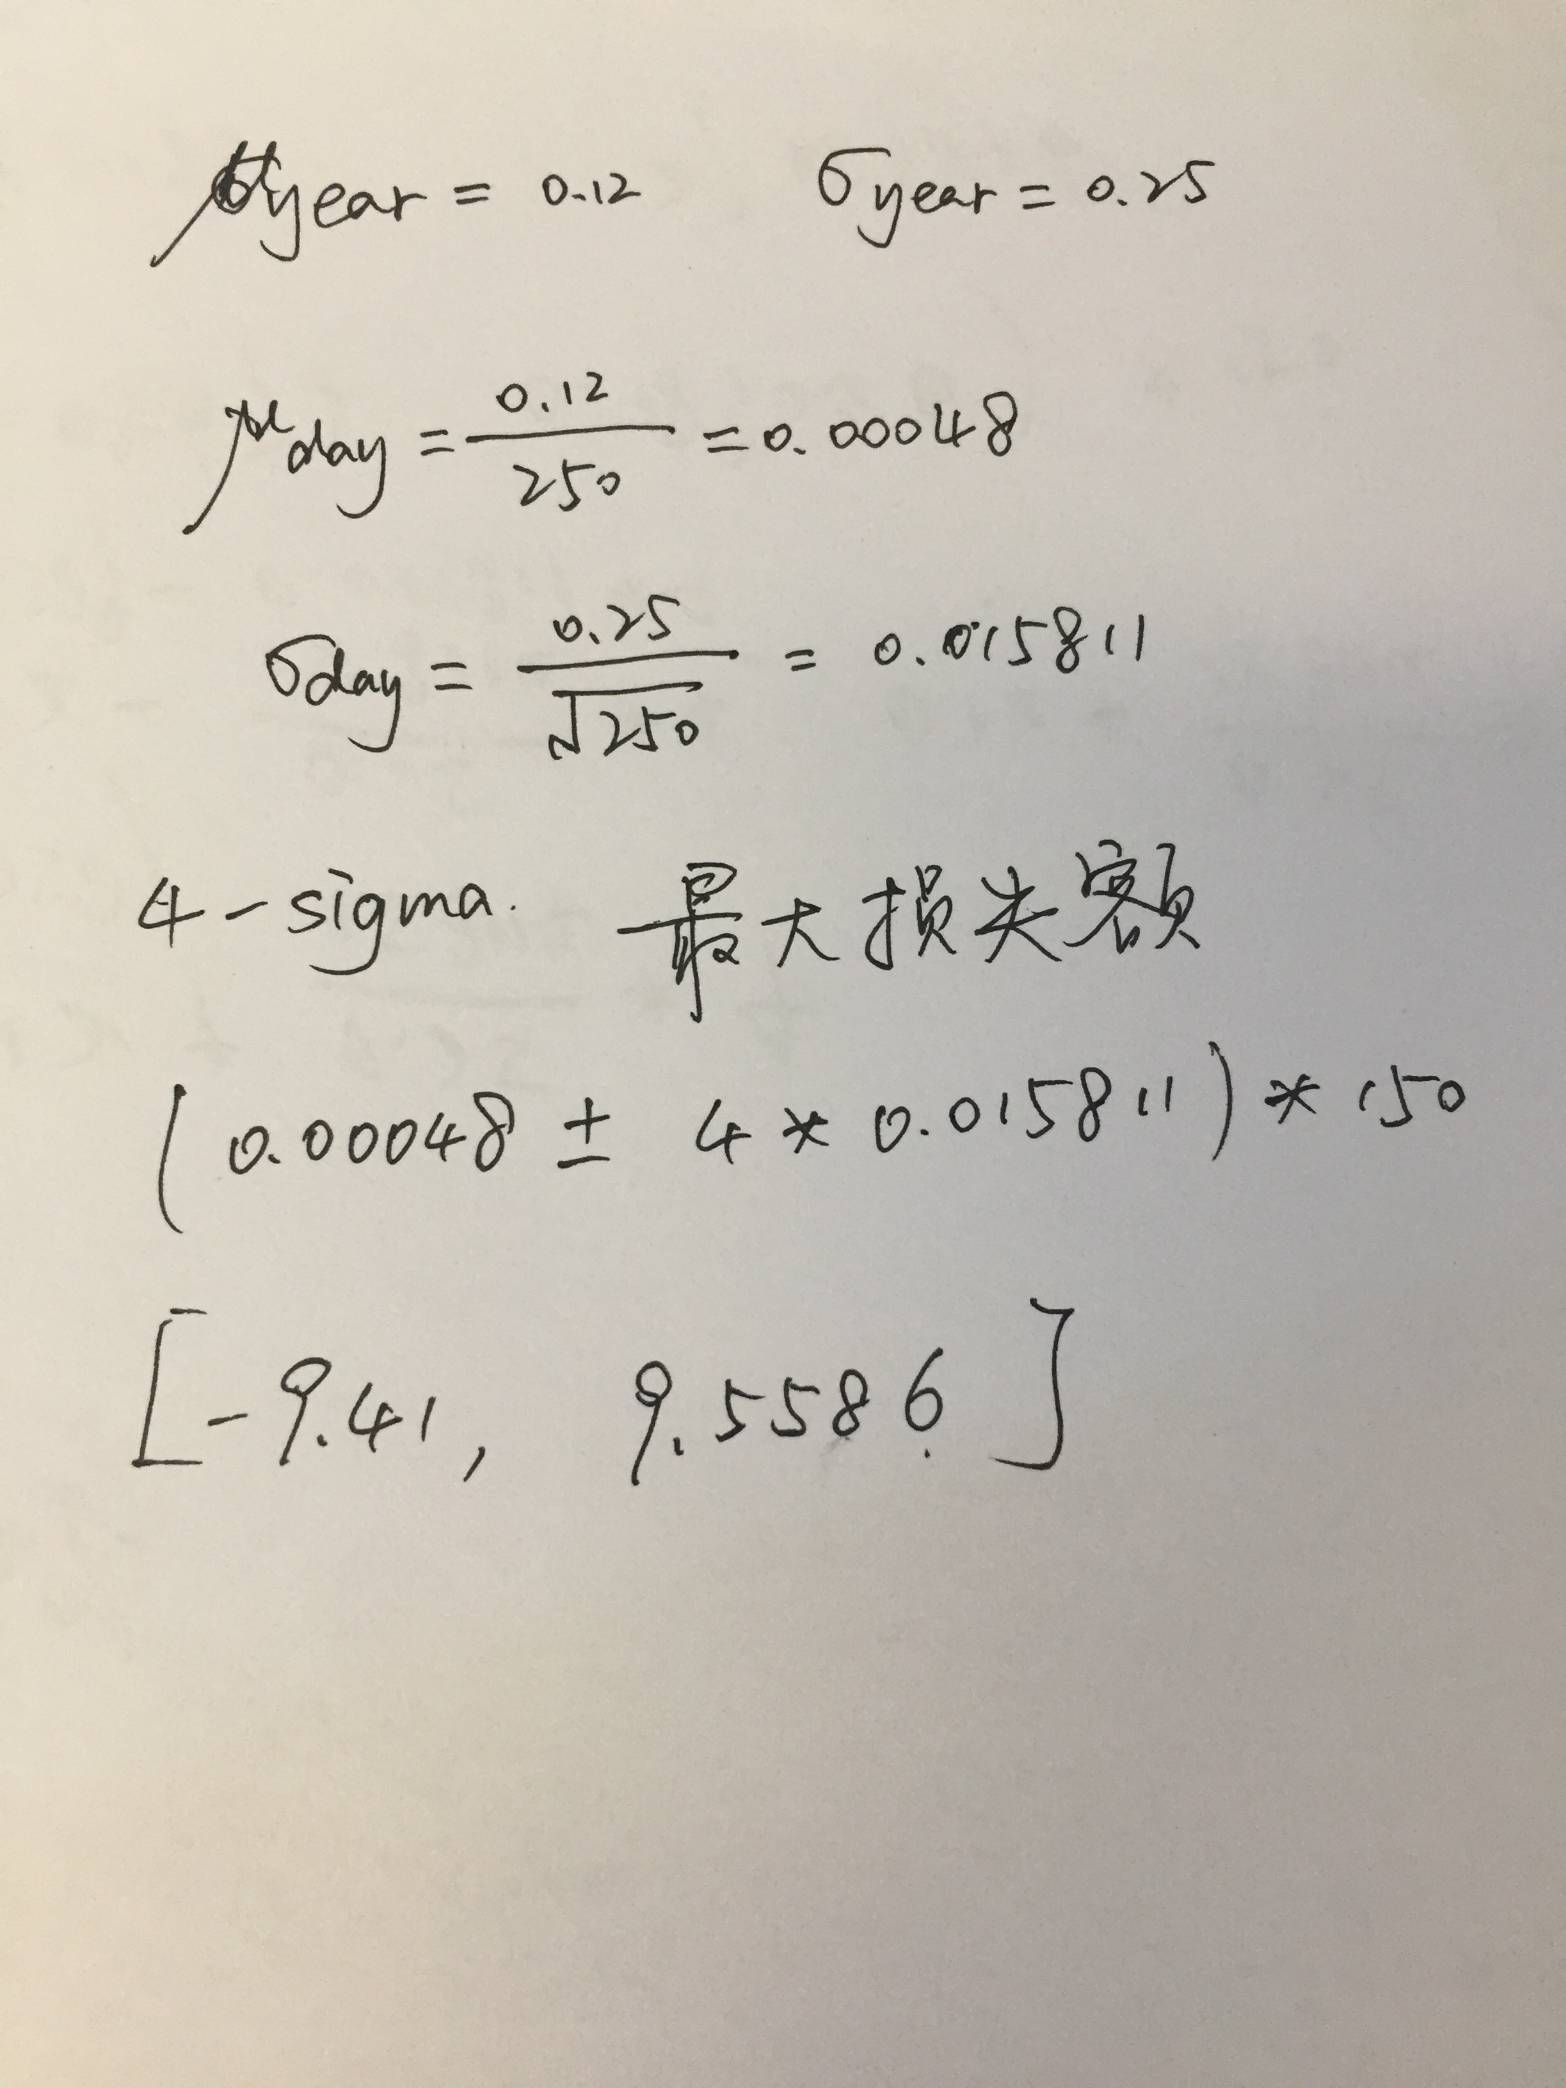 μyear = 0.12 σyear = 0.25
μday = 0.12/250 = 0.00048
σday = 0.25/√250 = 0.015811
4-sigma. 最大损失额
(0.00048 ± 4 * 0.015811) * 150
[-9.41, 9.5586]